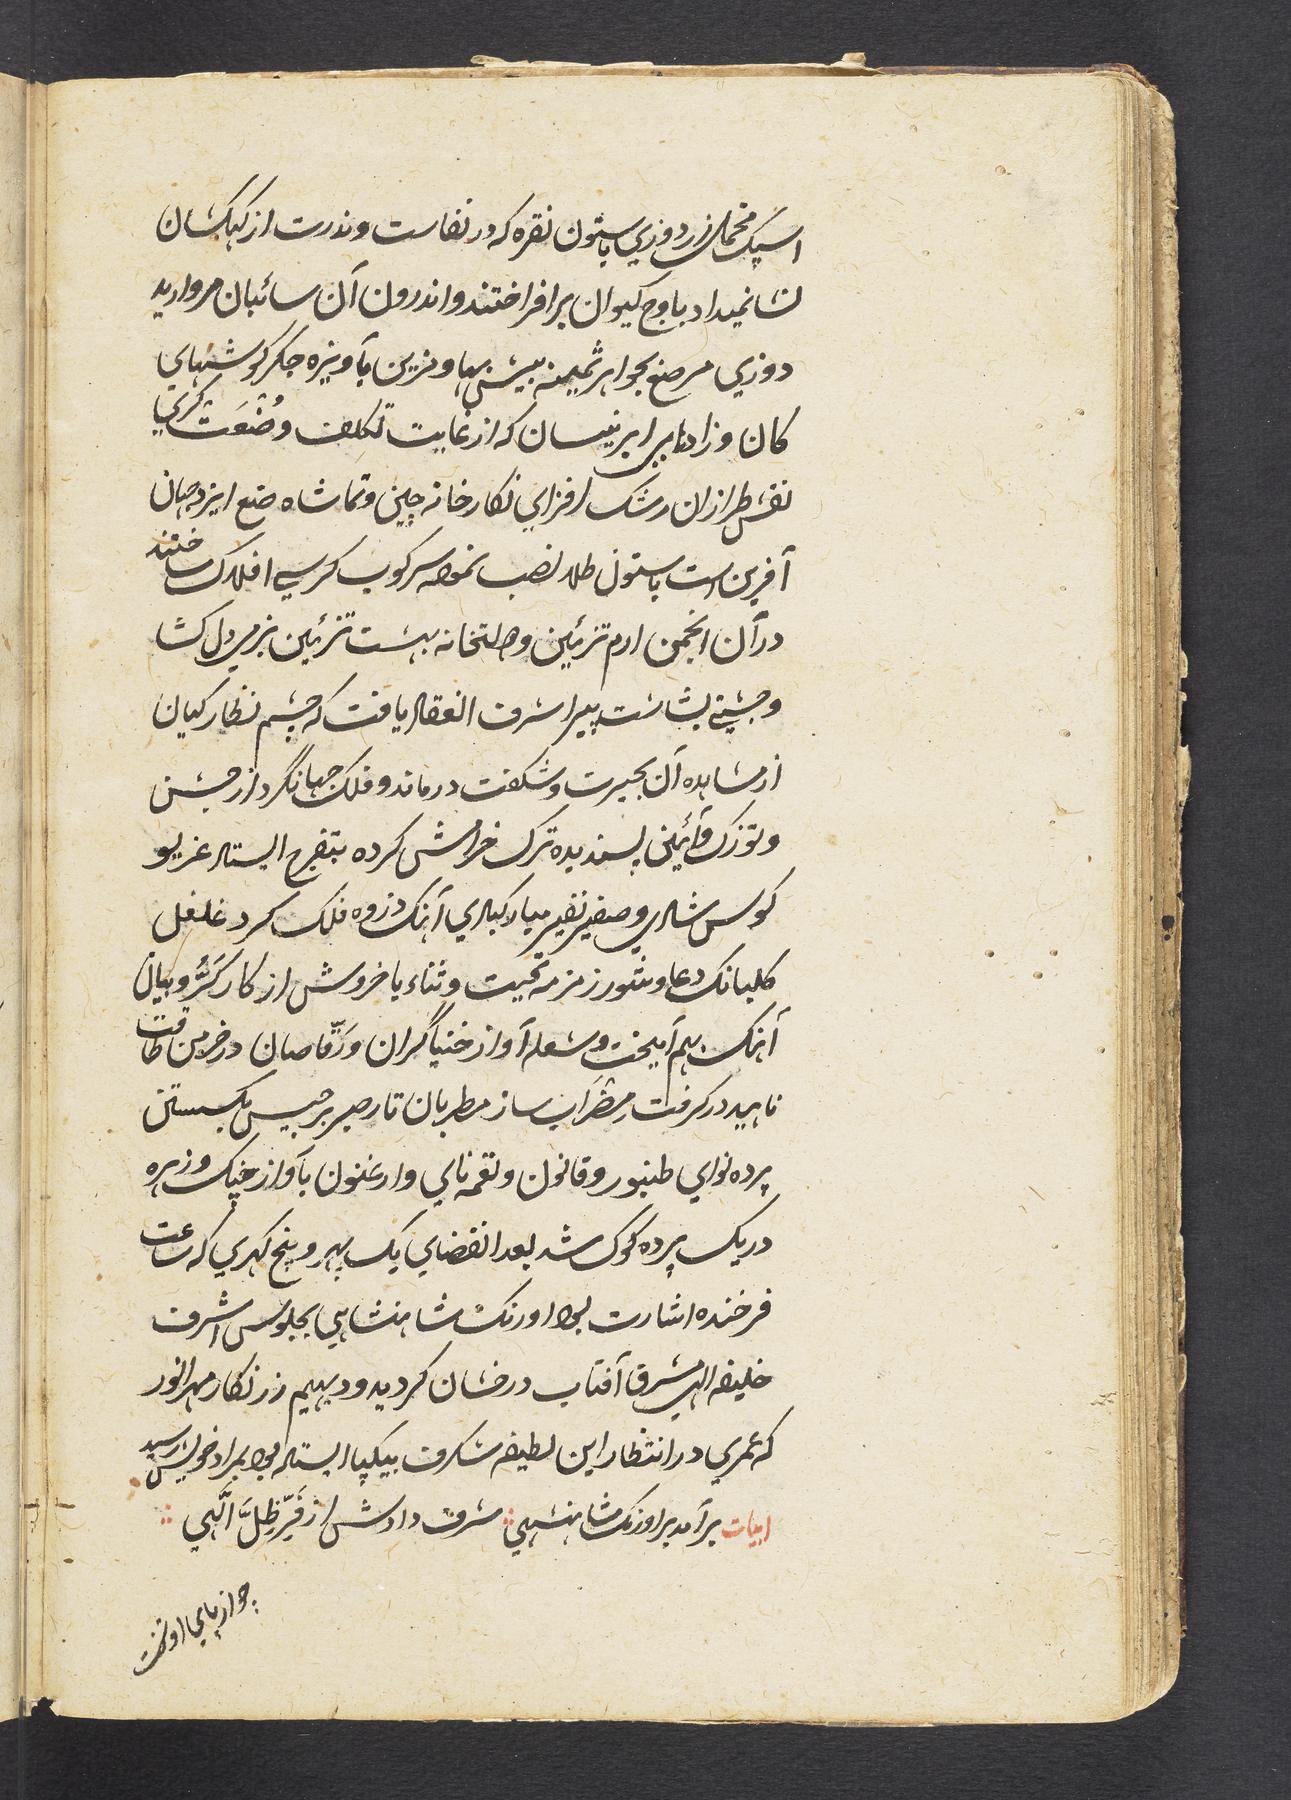 اسپک مخملی زردوزی باستون نقره که در نفاست و ندرت از کهکشان
نشانمیداد باوج کیوان برافراختند و اندرون آن سائبان مروارید
دوزی مرصع بجواهر ثمینه بیش بها و تزین بآویزه جکر کوشهای
کان و زادهای ابر نیسان که از غایت تکلف و صُنْعَت کری
نقش طرازان رشک افزای نکارخانه چین و تماشاه صنع ایزد جهان
آفرین است باستون طلا نصب نموده سرکوب کرسی افلاک ساختند
در آن انجمن ارم تزئین و دولتخانه بهشت تزئین بزمی دل کشا
و جشنی بشاشت پیرا شرف انعقاد یافت که چشم نظارکیان
از مشاهده آن بحیرت و شکفت درماند و فلک جهانگرد از جشن
و توزک و آئین پسندیده ترک خرامش کرده بتفرج ایستاد غریو
کوس شادی و صفیر نفیر مبارکبادی آهنک ذروه فلک کرد غلغل
کلبانک دعا و شور زمزمه تحیت و ثناء با خروش از کار کَرُّوبیان
آهنک بهم آمیخت و شعله آواز خنیاگران و رَقّاصان در خرمن طاقت
ناهید درکرفت مِضرَاب ساز مطربان تار صبر برجیس بکسستن
پرده نوای طنبور و قانون و نغمه نای و ارغنون بآواز چنک و زهره
در یک پرده کوک شد بعد انقضای یک پهر و پنج کهری که ساعت
فرخنده اشارت بود اورنک شاهنشاهی بجلوس اشرف
خلیفه الهی مشرق آفتاب درخشان کردید و دیهیم زرنکار مهر انور
که عمری در انتظار این لطیفه شکرف بیکپا ایستاده بود بمراد خویش رسید
ابیات برآمد بر اورنک شاهنشهی شرف دادش از فَرِّ ظِلَّ الٓهی
چو از پای او تخت